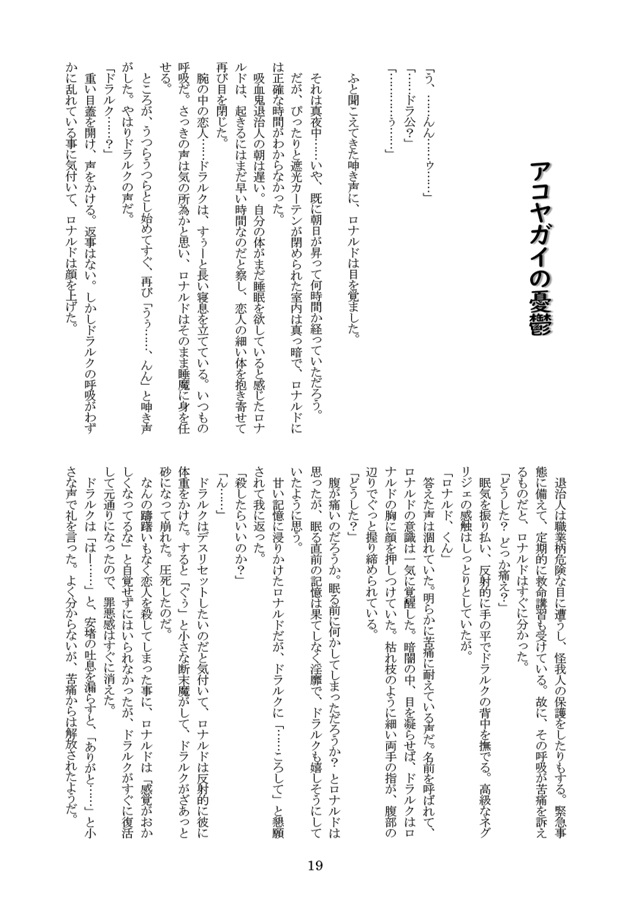 アコヤガイの憂鬱
「う、……んん……ゥ……」
「……ドラ公？」
「…………ぅ……」
ふと聞こえてきた呻き声に、ロナルドは目を覚ました。
それは真夜中……いや、既に朝日が昇って何時間か経っていただろう。
だが、ぴったりと遮光カーテンが閉められた室内は真っ暗で、ロナルドに
は正確な時間がわからなかった。
吸血鬼退治人の朝は遅い。自分の体がまだ睡眠を欲していると感じたロナ
ルドは、起きるにはまだ早い時間なのだと察し、恋人の細い体を抱き寄せて
再び目を閉じた。
腕の中の恋人……ドラルクは、すぅーと長い寝息を立てている。いつもの
呼吸だ。さっきの声は気の所為かと思い、ロナルドはそのまま睡魔に身を任
せる。
ところが、うつらうつらとし始めてすぐ、再び「うぅ……、んん」と呻き声
がした。やはりドラルクの声だ。
「ドラルク……？」
重い目蓋を開け、声をかける。返事はない。しかしドラルクの呼吸がわず
かに乱れている事に気付いて、ロナルドは顔を上げた。
退治人は職業柄危険な目に遭うし、怪我人の保護をしたりもする。緊急事
態に備えて、定期的に救命講習も受けている。故に、その呼吸が苦痛を訴え
るものだと、ロナルドはすぐに分かった。
「どうした？ どっか痛え？」
眠気を振り払い、反射的に手の平でドラルクの背中を撫でる。高級なネグ
リジェの感触はしっとりとしていたが。
「ロナルド、くん」
答えた声は涸れていた。明らかに苦痛に耐えている声だ。名前を呼ばれて、
ロナルドの意識は一気に覚醒した。暗闇の中、目を凝らせば、ドラルクはロ
ナルドの胸に顔を押しつけていた。枯れ枝のように細い両手の指が、腹部の
辺りでぐっと握り締められている。
「どうした？」
腹が痛いのだろうか。眠る前に何かしてしまっただろうか？ とロナルドは
思ったが、眠る直前の記憶は果てしなく淫靡で、ドラルクも嬉しそうにして
いたように思う。
甘い記憶に浸りかけたロナルドだが、ドラルクに「……ころして」と懇願
されて我に返った。
「殺したらいいのか？」
「ん……」
ドラルクはデスリセットしたいのだと気付いて、ロナルドは反射的に彼に
体重をかけた。すると「ぐぅ」と小さな断末魔がして、ドラルクがざあっと
砂になって崩れた。圧死したのだ。
なんの躊躇いもなく恋人を殺してしまった事に、ロナルドは「感覚がおか
しくなってるな」と自覚せずにはいられなかったが、ドラルクがすぐに復活
して元通りになったので、罪悪感はすぐに消えた。
ドラルクは「はー……」と、安堵の吐息を漏らすと、「ありがと……」と小
さな声で礼を言った。よく分からないが、苦痛からは解放されたようだ。
19